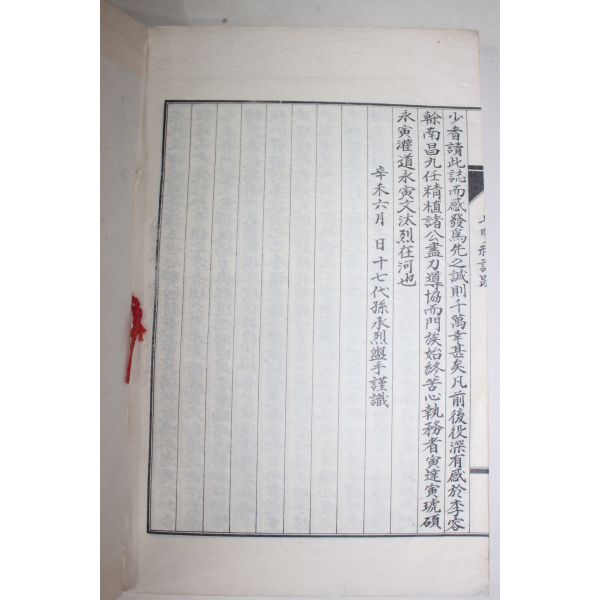 少者讀此誌而感發焉先之誠則千萬幸甚矣凡前後役深有感於李容
榦南昌九任精植諸公盡力導協而門族始終苦心執務者寅達寅琥碩
永寅灌道永寅文汰烈在河也
辛未六月 日十七代孫承烈盥手謹識